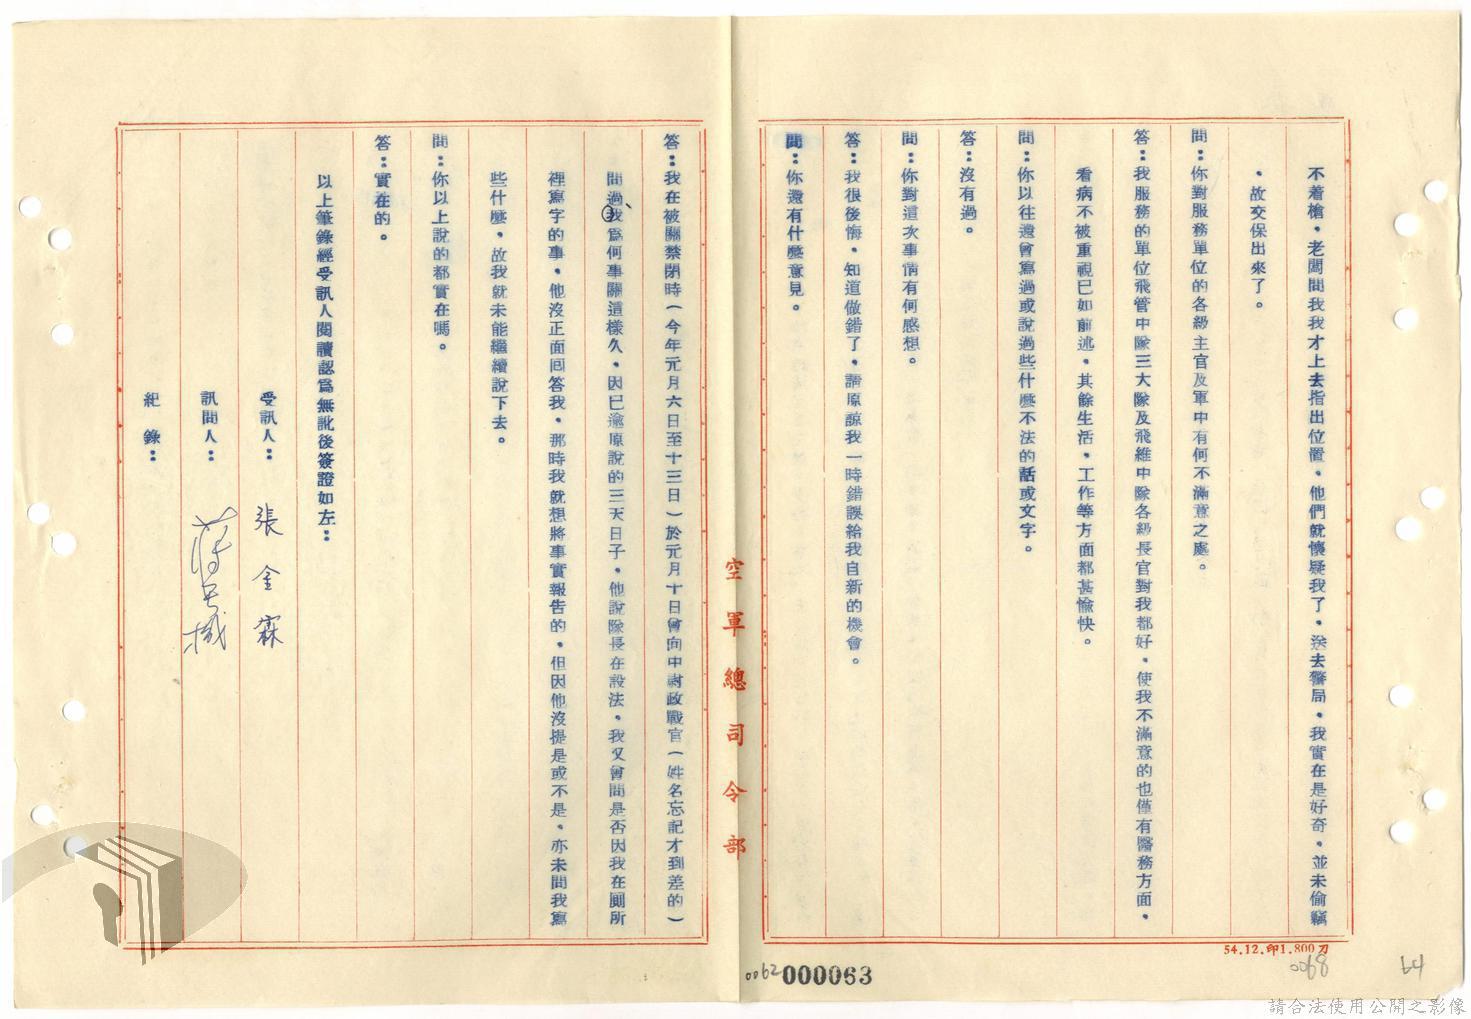 不着槍，老闆問我我才上去指出位置，他們就懷疑我了，送去警局，我實在是好奇，並未偷竊
，故交保出來了。
問：你對服務單位的各級主官及軍中有何不滿意之處。
答：我服務的單位飛管中隊三大隊及飛維中隊各級長官對我都好，使我不滿意的也僅有醫務方面，
看病不被重視已如前述，其餘生活，工作等方面都甚愉快。
問：你以往還曾寫過或說過些什麼不法的話或文字。
答：沒有過。
問：你對這次事情有何感想。
答：我很後悔，知道做錯了，請原諒我一時錯誤給我自新的機會。
問：你還有什麼意見。
空軍總司令部
答：我在被關禁閉時（今年元月六日至十三日）於元月十日曾向中尉政戰官（姓名忘記才到差的）
問過我為何事關這樣久，因已逾原說的三天日子，他說隊長在設法，我又曾問是否因我在厠所
裡寫字的事，他沒正面回答我，那時我就想將事實報告的，但因他沒提是或不是，亦未問我寫
些什麼，故我就未能繼續說下去。
問：你以上說的都實在嗎。
答：實在的。
以上筆錄經受訊人閱讀認為無訛後簽證如左：
受訊人：張金霖
訊問人：
紀錄：
54.12.印1.800刀
0062
000063
0068
64
請合法使用公開之影像